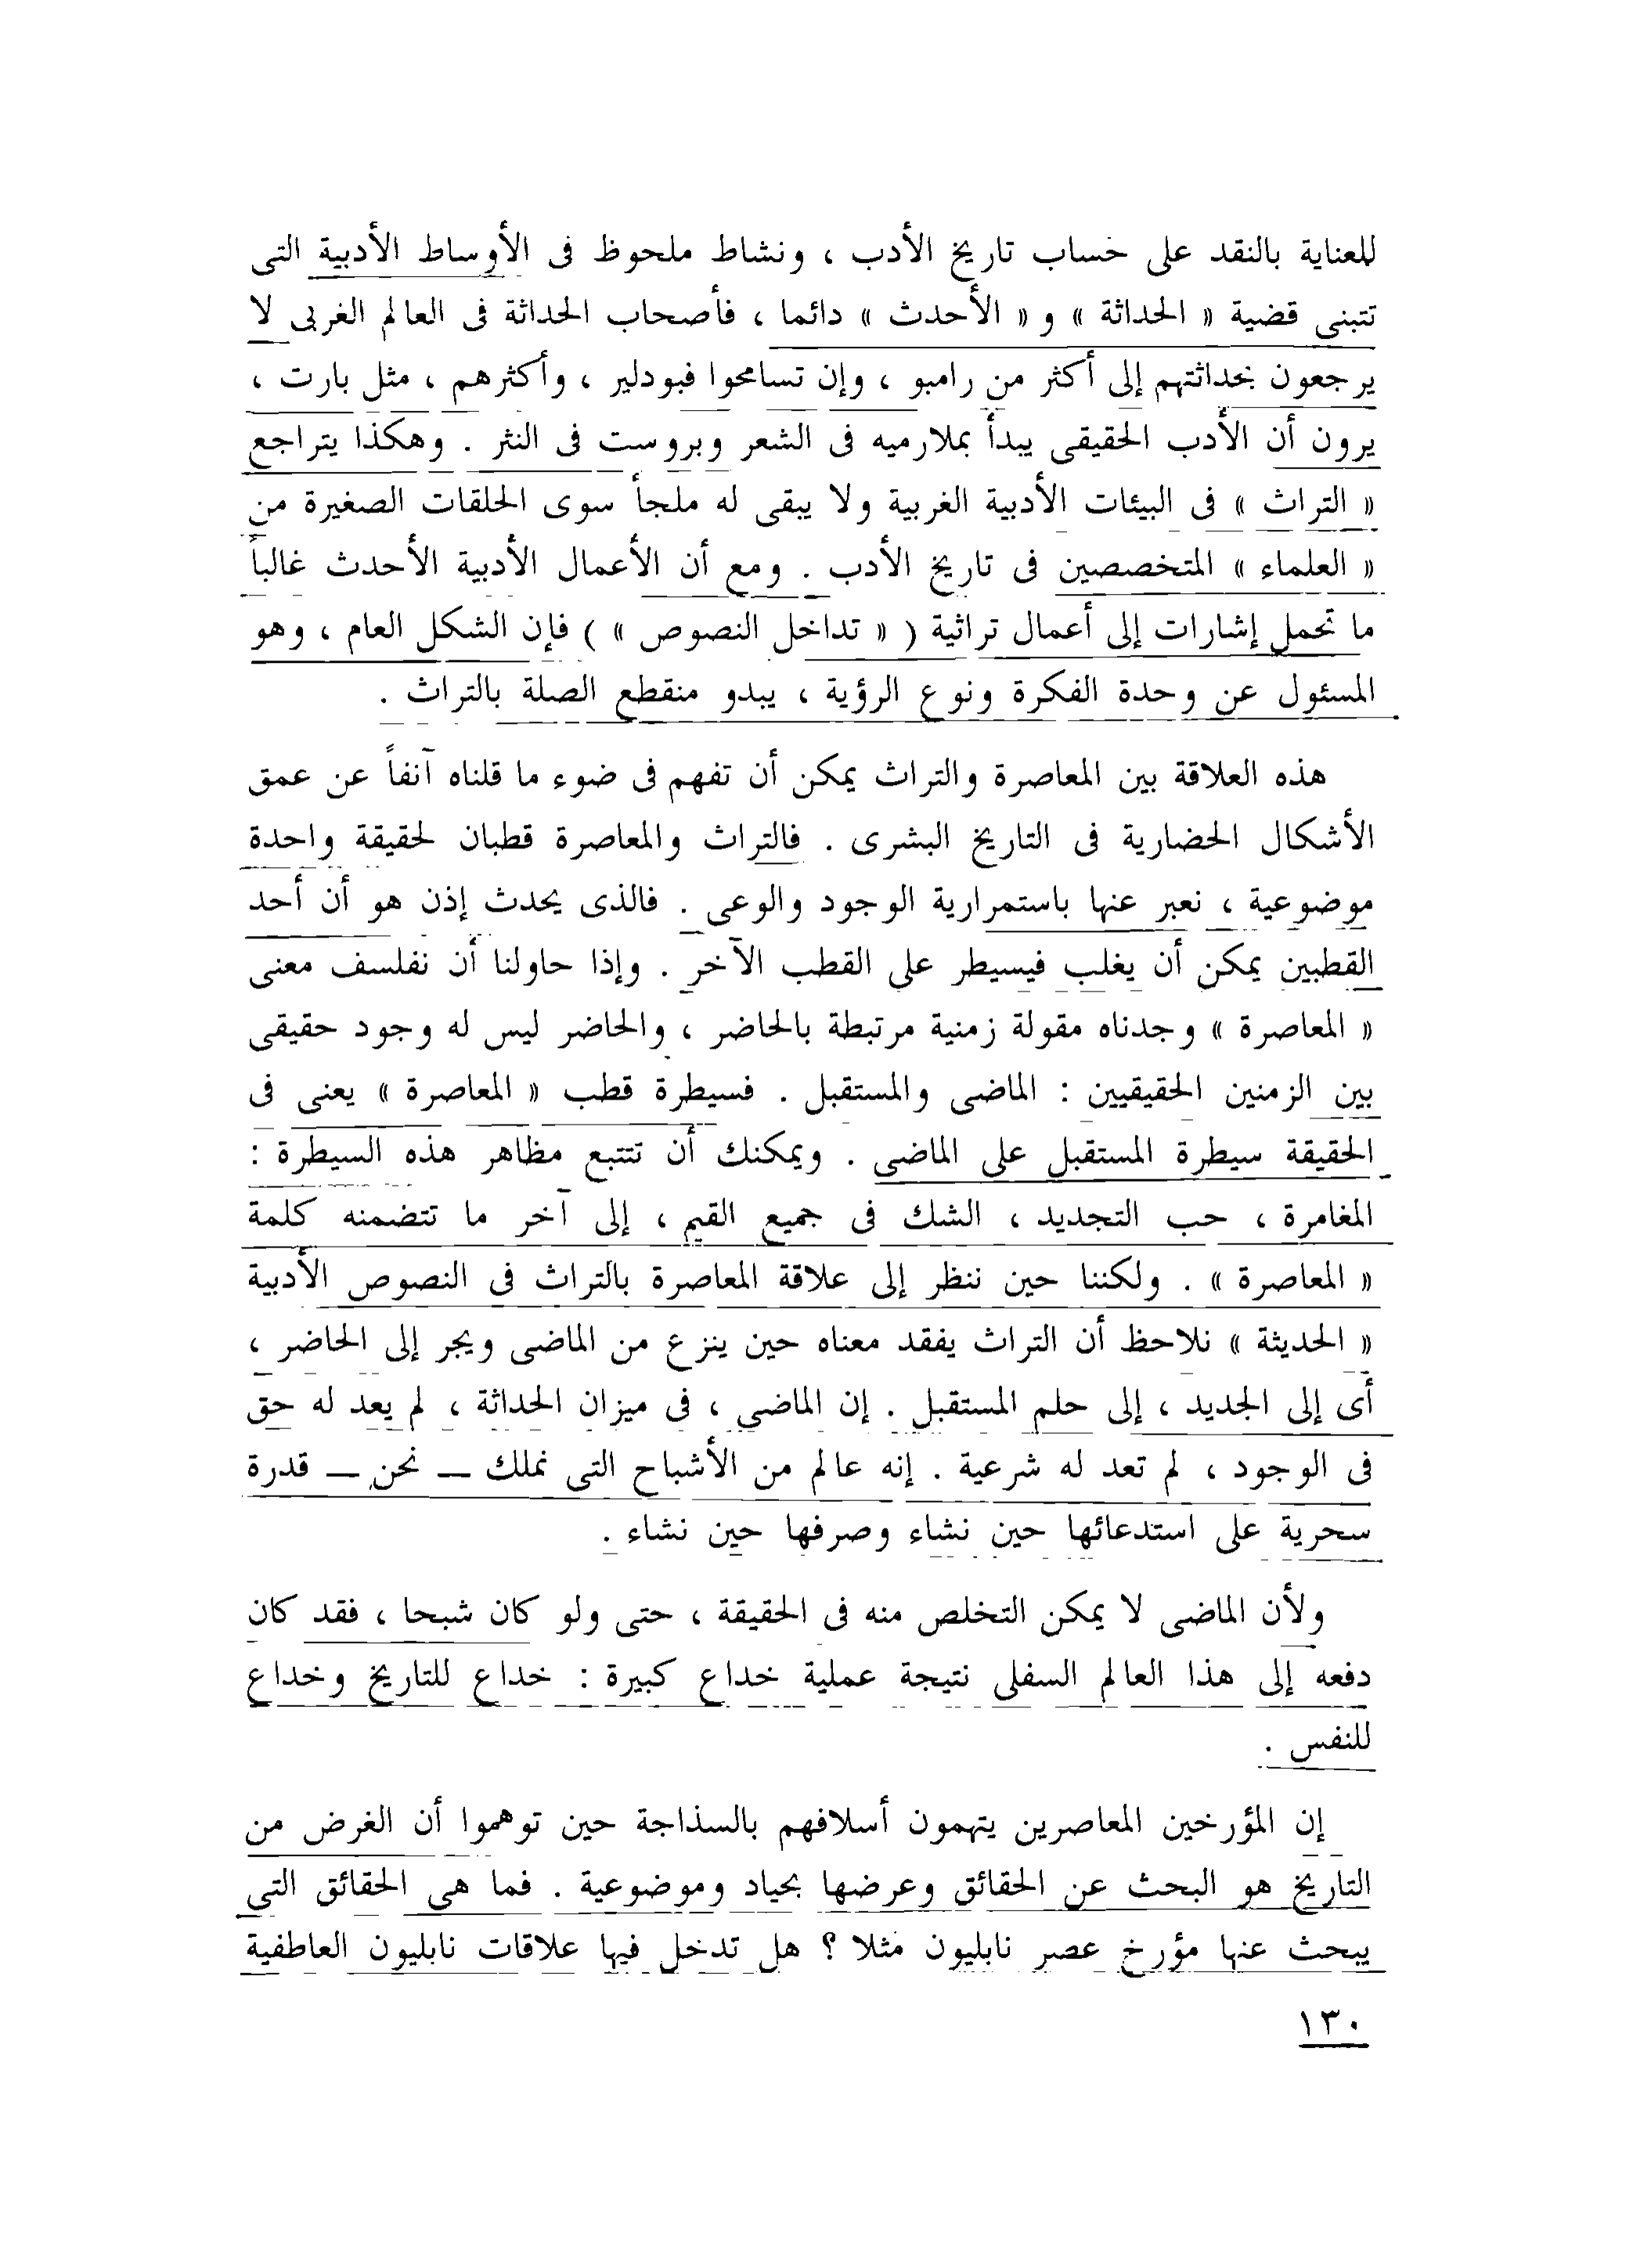 للعناية بالنقد على حساب تاريخ الأدب ، ونشاط ملحوظ فى الأوساط الأدبية التى
تتبنى قضية « الحداثة » و « الأحدث » دائما ، فأصحاب الحداثة فى العالم الغربى لا
يرجعون بحداثتهم إلى أكثر من رامبو ، وإن تسامحوا فبودلير ، وأكثرهم ، مثل بارت ،
يرون أن الأدب الحقيقى يبدأ بملارميه فى الشعر وبروست فى النثر . وهكذا يتراجع
« التراث » فى البيئات الأدبية الغربية ولا يبقى له ملجأ سوى الحلقات الصغيرة من
« العلماء » المتخصصين فى تاريخ الأدب . ومع أن الأعمال الأدبية الأحدث غالباً
ما تحمل إشارات إلى أعمال تراثية ( « تداخل النصوص » ) فإن الشكل العام ، وهو
المسئول عن وحدة الفكرة ونوع الرؤية ، يبدو منقطع الصلة بالتراث .
هذه العلاقة بين المعاصرة والتراث يمكن أن تفهم فى ضوء ما قلناه آنفاً عن عمق
الأشكال الحضارية فى التاريخ البشرى . فالتراث والمعاصرة قطبان لحقيقة واحدة
موضوعية ، نعبر عنها باستمرارية الوجود والوعى . فالذى يحدث إذن هو أن أحد
القطبين يمكن أن يغلب فيسيطر على القطب الآخر . وإذا حاولنا أن نفلسف معنى
« المعاصرة » وجدناه مقولة زمنية مرتبطة بالحاضر ، والحاضر ليس له وجود حقيقى
بين الزمنين الحقيقيين : الماضى والمستقبل . فسيطرة قطب « المعاصرة » يعنى فى
الحقيقة سيطرة المستقبل على الماضى . ويمكنك أن تتتبع مظاهر هذه السيطرة :
المغامرة ، حب التجديد ، الشك فى جميع القيم ، إلى آخر ما تتضمنه كلمة
« المعاصرة » . ولكننا حين ننظر إلى علاقة المعاصرة بالتراث فى النصوص الأدبية
« الحديثة » نلاحظ أن التراث يفقد معناه حين ينزع من الماضى ويجر إلى الحاضر ،
أى إلى الجديد ، إلى حلم المستقبل . إن الماضى ، فى ميزان الحداثة ، لم يعد له حق
فى الوجود ، لم تعد له شرعية . إنه عالم من الأشباح التى نملك ــ نحن ــ قدرة
سحرية على استدعائها حين نشاء وصرفها حين نشاء .
ولأن الماضى لا يمكن التخلص منه فى الحقيقة ، حتى ولو كان شبحا ، فقد كان
دفعه إلى هذا العالم السفلى نتيجة عملية خداع كبيرة : خداع للتاريخ وخداع
للنفس .
إن المؤرخين المعاصرين يتهمون أسلافهم بالسذاجة حين توهموا أن الغرض من
التاريخ هو البحث عن الحقائق وعرضها بحياد وموضوعية . فما هى الحقائق التى
يبحث عنها مؤرخ عصر نابليون مثلا ؟ هل تدخل فيها علاقات نابليون العاطفية
١٣٠